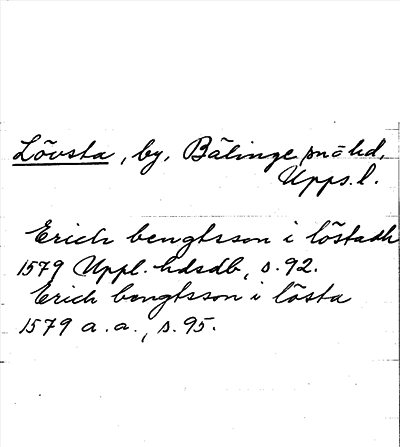 Lövsta, by, Bälinge sn o hd,
Upps. l.
Erich bengtsson i löstadh
1579 Uppl. hdsdb, s. 92.
Erich bengtsson i lösta
1579 a. a., s. 95.